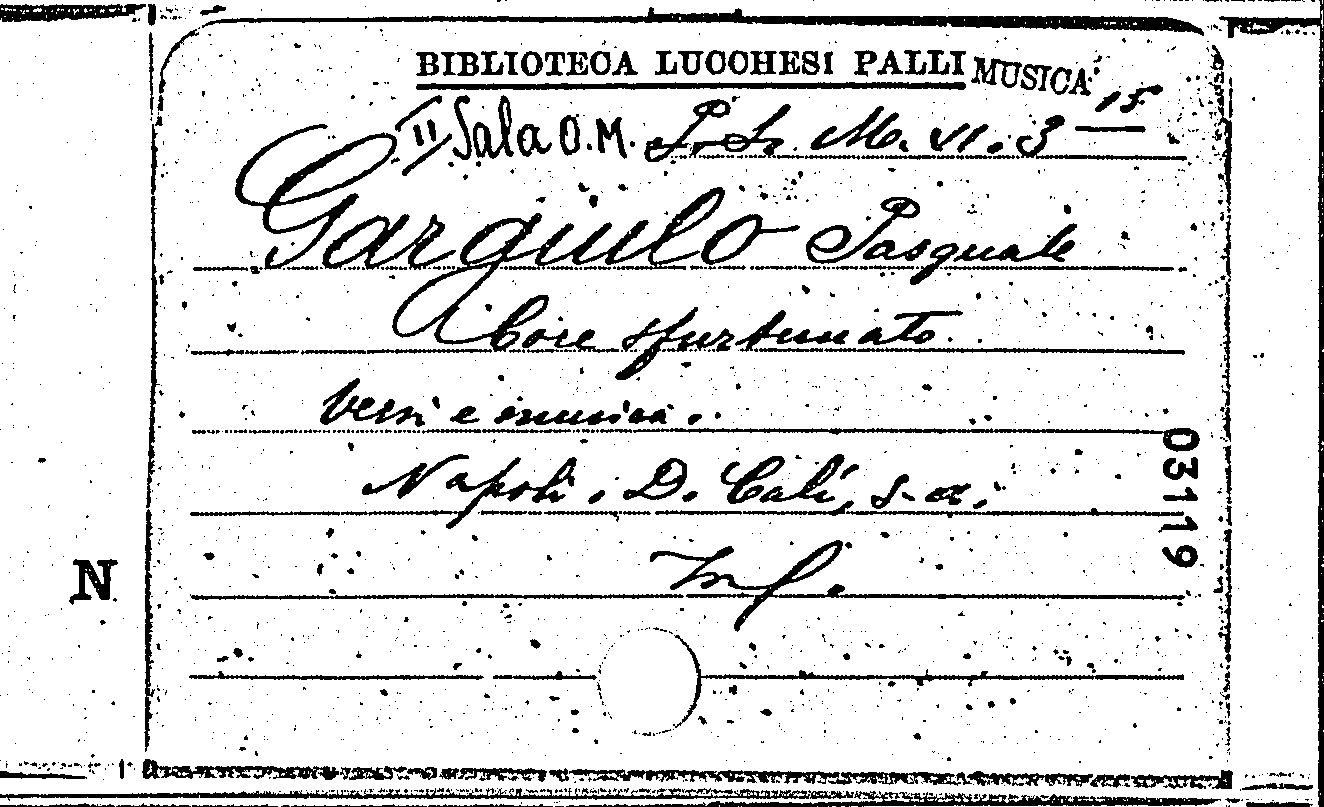 BIBLIOTECA LUCCHESI PALLI MUSICA
II Sala O.M. P. S. M. VI. 3 15
Gargiulo Pasquale
Core sfurtunato.
Versi e musica.
Napoli. D. Calí, s. a.
In f.
03119
N